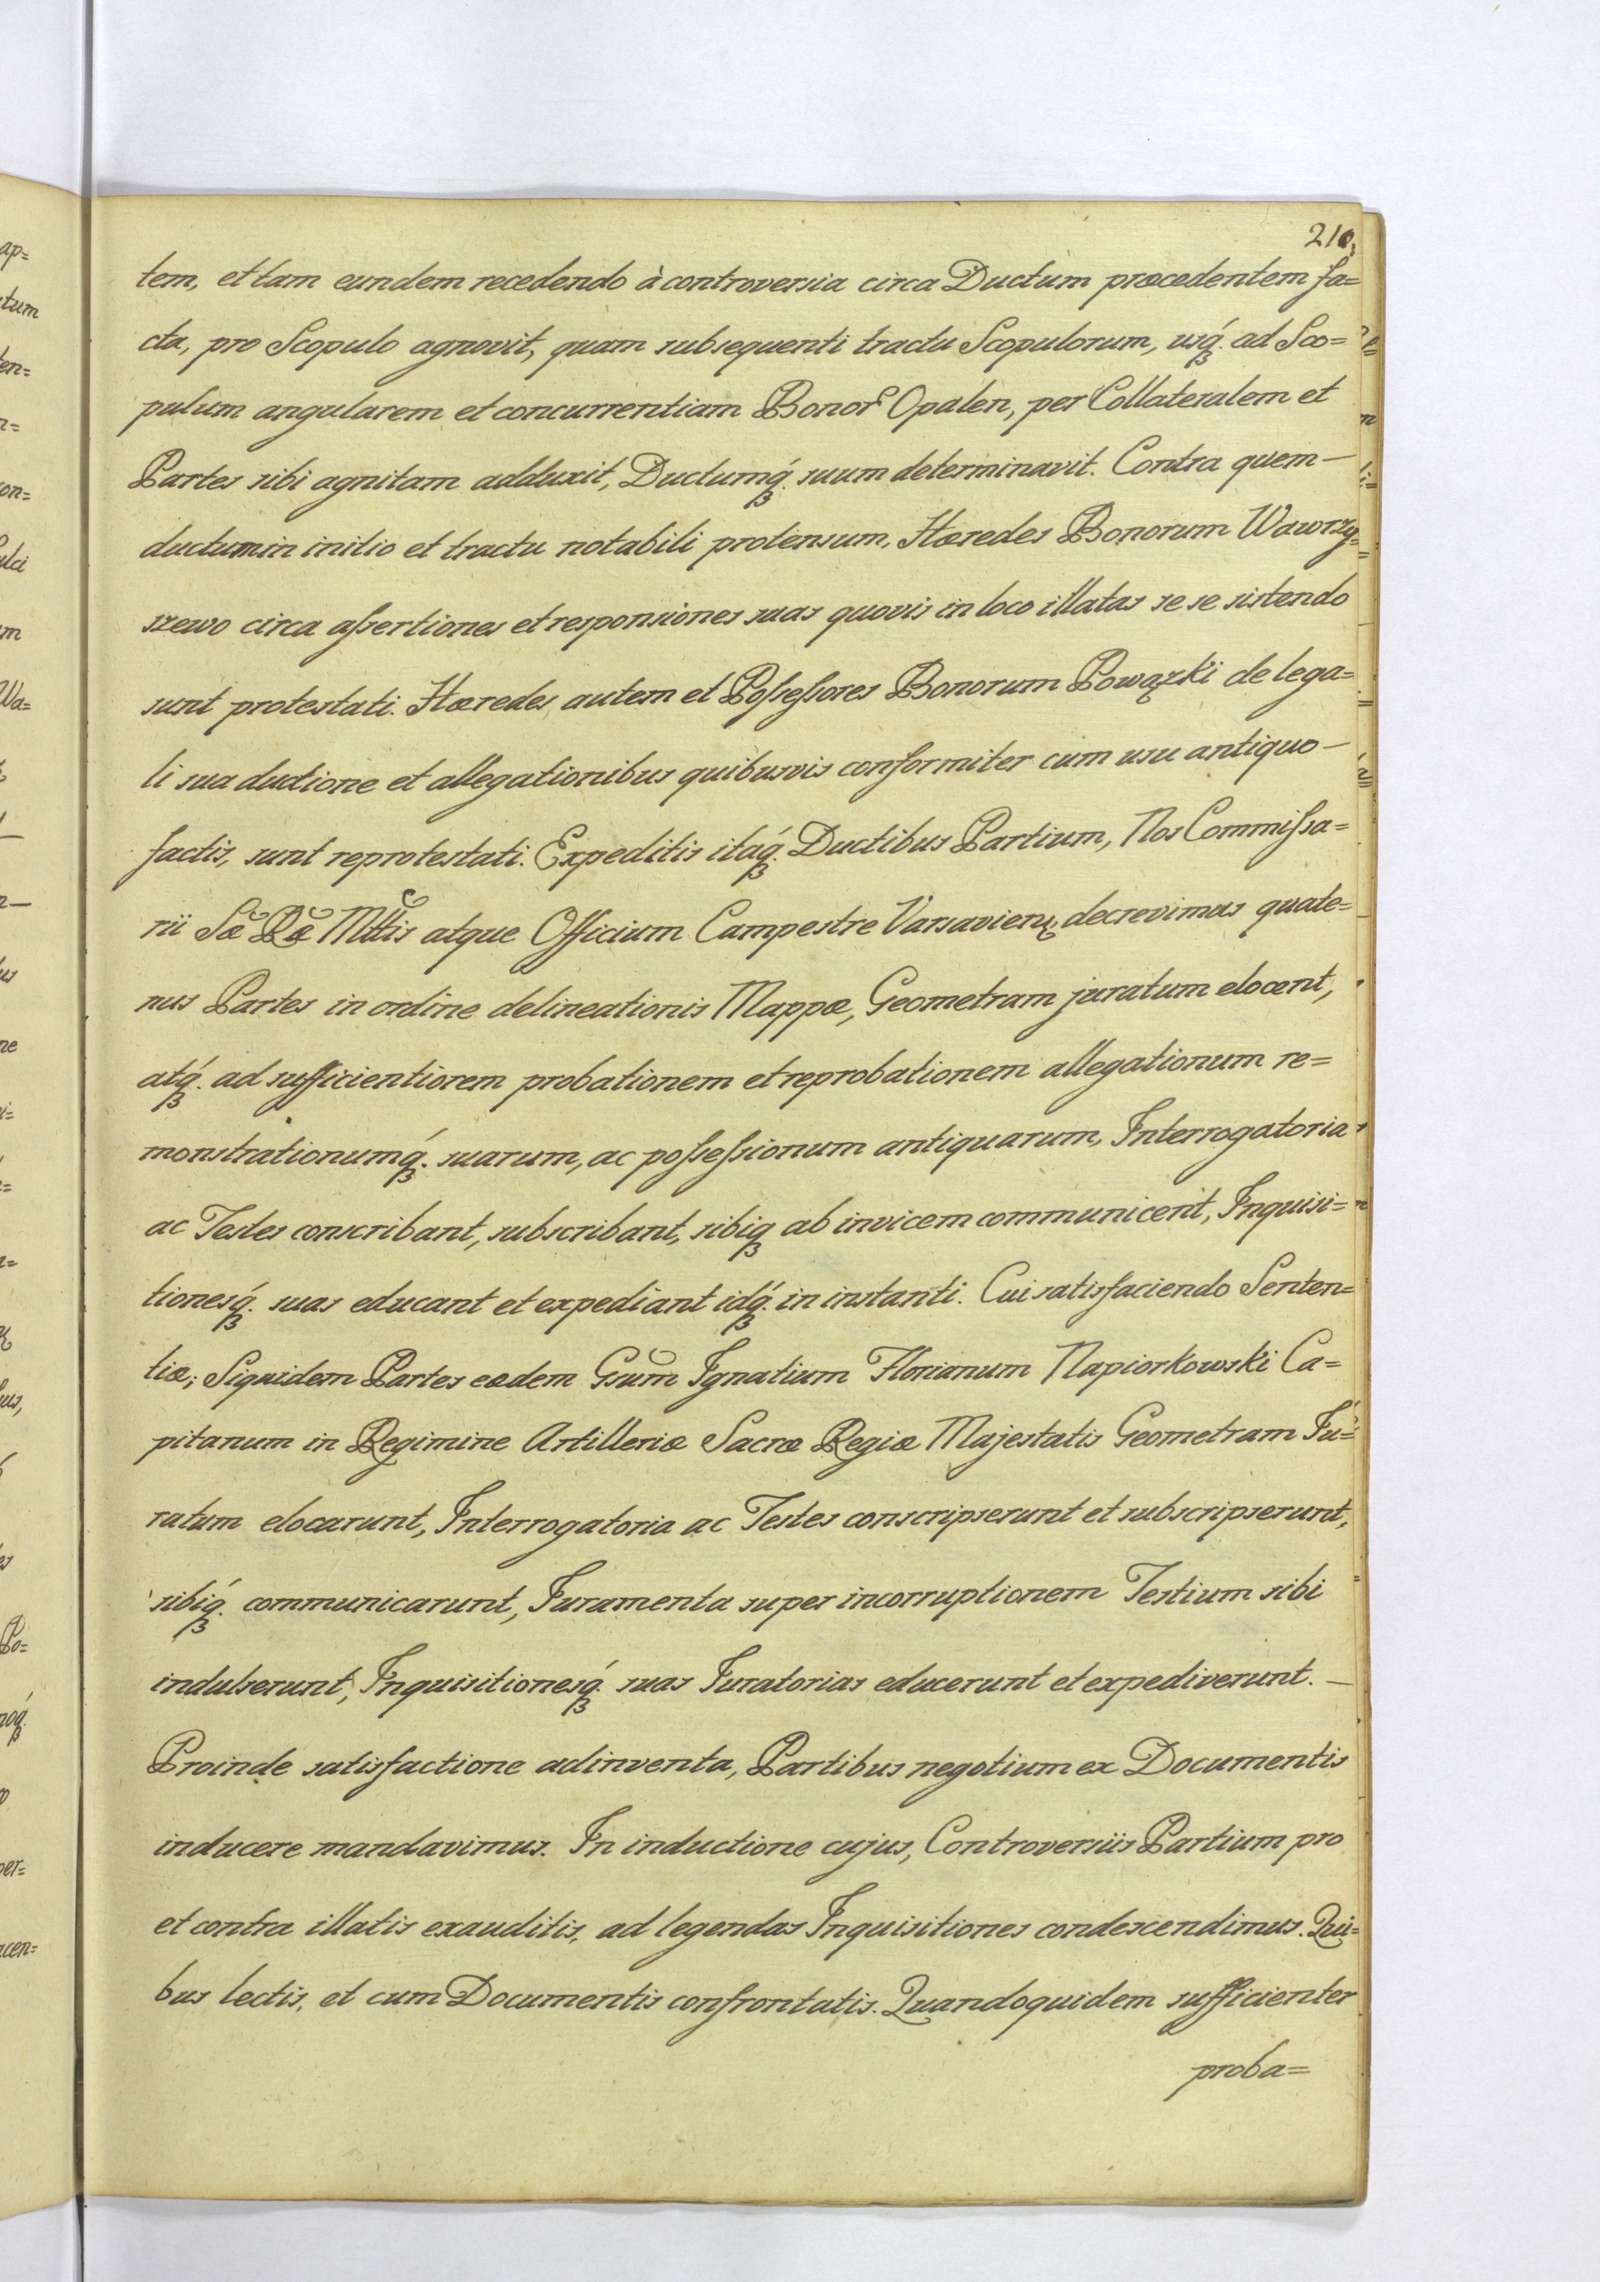 210,
tem, et tam eundem recedendo à controversia circa Ductum præcedentem fa=
cta, pro Scopulo agnovit, quam subsequenti tractu Scopulorum, usq́. ad Sco=
pulum angularem et concurrentiam Bonor Opalen, per Collateralem et
Partes sibi agnitam adduxit, Ductumq́. suum determinavit. Contra quem—
ductum in initio et tractu notabili protensum, Hæredes Bonorum Wawrzy=
szewo circa assertiones et responsiones suas quovis in loco illatas se se sistendo
sunt protestati. Hæredes autem et Possessores Bonorum Powązki de lega=
li sua ductione et allegationibus quibusvis conformiter cum usu antiquo—
factis, sunt reprotestati. Expeditis itaq́. Ductibus Partium, Nos Commissa=
rii Sæ Ræ Mttis atque Officium Campestre Varsavien, decrevimus quate=
nus Partes in ordine delineationis Mappæ, Geometram juratum elocent,
atq́. ad sufficientiorem probationem et reprobationem allegationum re=
monstrationumq́. suarum, ac possessionum antiquarum, Interrogatoria
ac Testes conscribant, subscribant, sibiq ab invicem communicent, Inquisi=
tionesq́. suas educant et expediant idq́. in instanti. Cui satisfaciendo Senten=
tiæ; Siquidem Partes eædem Gsum Ignatium Florianum Napiorkowski Ca=
pitanum in Regimine Artilleriæ Sacræ Regiæ Majestatis Geometram Ju=
ratum elocarunt, Interrogatoria ac Testes conscripserunt et subscripserunt,
sibiq́. communicarunt, Juramenta super incorruptionem Testium sibi
indulserunt, Inquisitionesq́. suas Juratorias educerunt et expediverunt.—
Proinde satisfactione adinventa, Partibus negotium ex Documentis
inducere mandavimus. In inductione cujus, Controversiis Partium pro
et contra illatis exauditis, ad legendas Inquisitiones condescendimus. Qui=
bus lectis, et cum Documentis confrontatis. Quandoquidem sufficienter
proba=